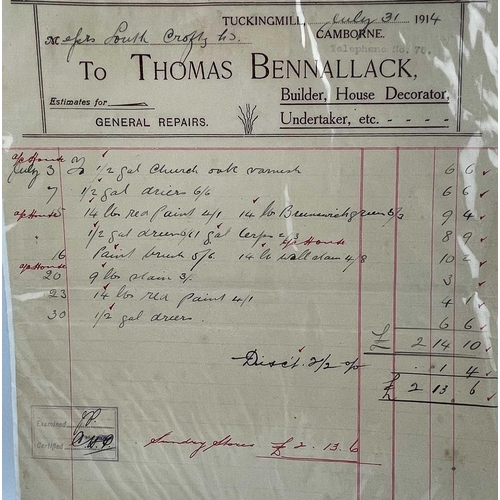 TUCKINGMILL, July 31 1914
Messrs South Crofty Ld. CAMBORNE.
Telephone No. 70.
To THOMAS BENNALLACK,
Builder, House Decorator,
Estimates for
GENERAL REPAIRS. Undertaker, etc. - - - -
a/c House
July 3 To 1/2 gal Church oak varnish 6 6
7 1/2 gal driers 6/6 6 6
a/c House 14 lbs red paint 4/1 14 lb Brunswick green 5/3 9 4
1/2 gal driers gal Terps 4/3 8 9
a/c House
16 Paint brush 5/6 14 lb wall stain 4/8 10 2
a/c House
20 9 lbs stain 3/. 3
23 14 lbs red paint 4/1 4 1
30 1/2 gal driers. 6 6
£ 2 14 10
Disc't. 2/2 % . 1 4
£ 2 13 . 6
Examined
Certified
Sundry Stores £2 . 13 . 6